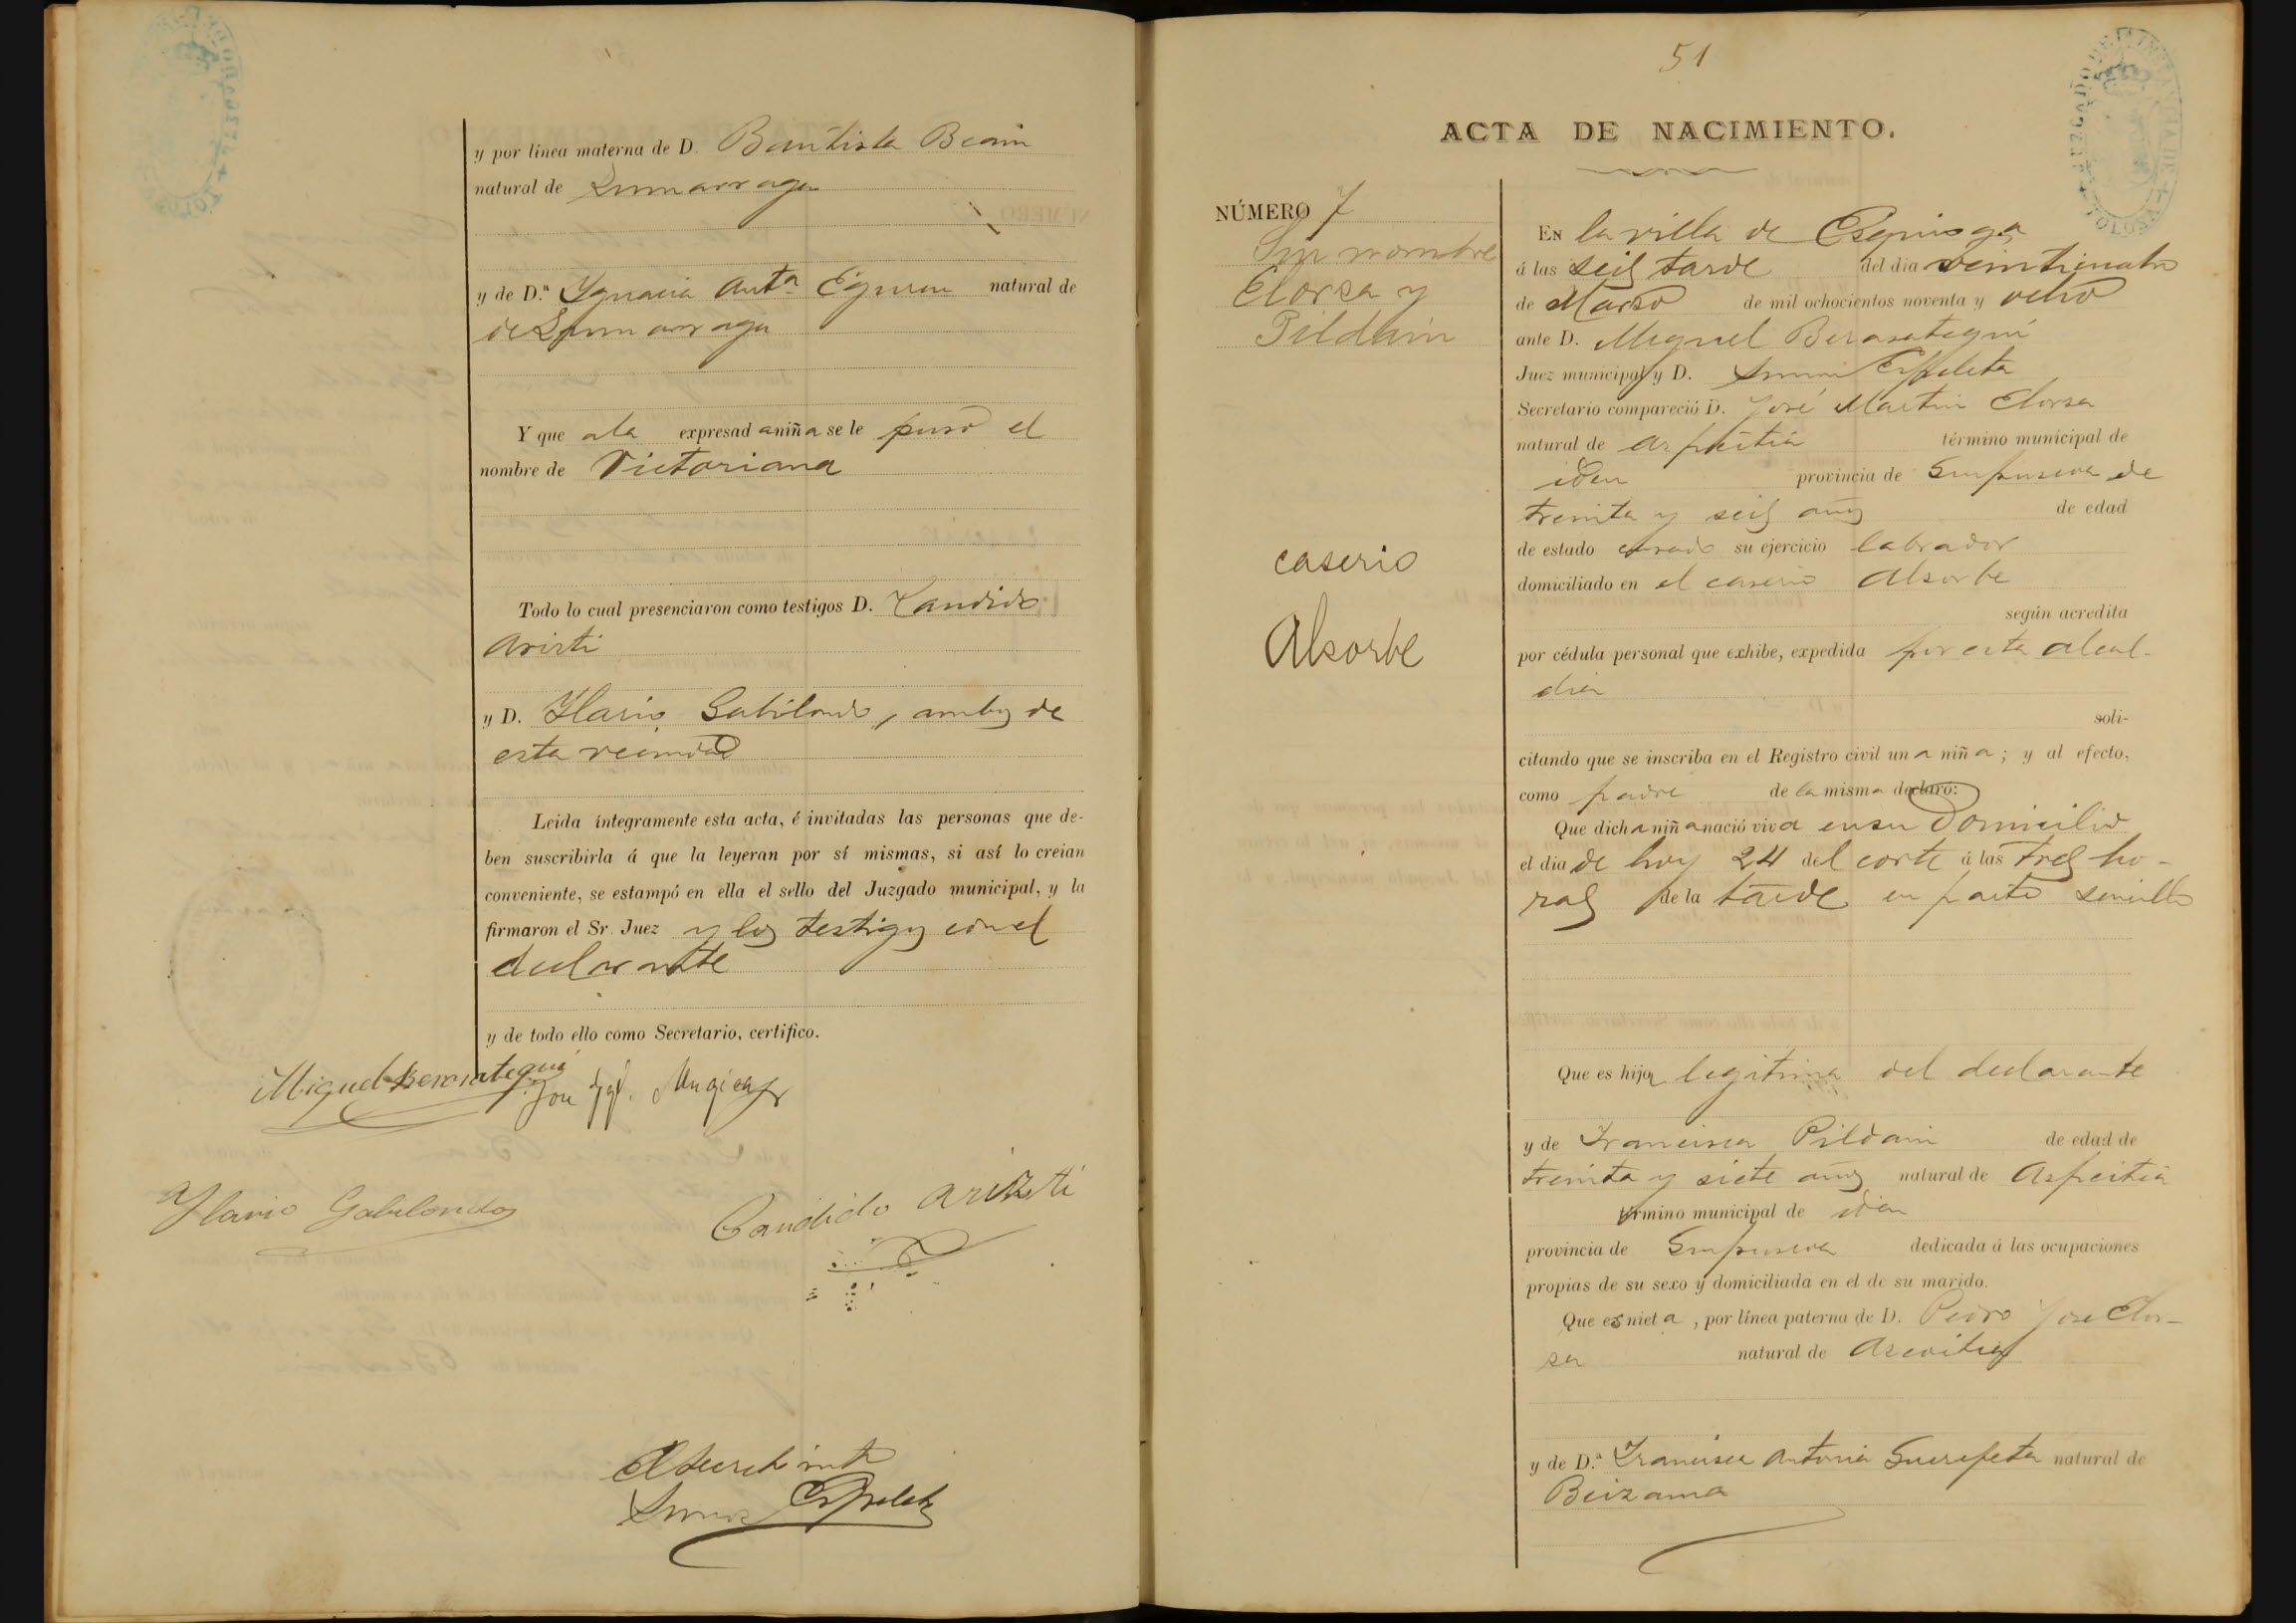 y por línea materna de D. Bautista Beain
natural de Zumarraga
y de D.ª Ygnacia Ant.ª Eguren natural de
de Zumarraga
Y que a la expresada niña se le puso el
nombre de Victoriana
Todo lo cual presenciaron como testigos D. Candido
Aristi
y D. Ylario Gabilondo, ambos de
esta vecindad
Leida íntegramente esta acta, é invitadas las personas que de-
ben suscribirla á que la leyeran por sí mismas, si así lo creian
conveniente, se estampó en ella el sello del Juzgado municipal, y la
firmaron el Sr. Juez y los testigos con el
declarante
y de todo ello como Secretario, certifico.
Miguel Berasategui
José Mugica
Ylario Gabilondo
Candido Arizti
El Secret.º int.º
Ezpeleta
51
ACTA DE NACIMIENTO.
NÚMERO 7
Sin nombre
Elorza y
Pildain
caserio
Alsorbe
En la villa de Ezquioga
á las seis tarde del dia veinticuatro
de Marzo de mil ochocientos noventa y ocho
ante D. Miguel Berasategui
Juez municipal y D. Ezpeleta
Secretario compareció D. José Martin Elorza
natural de Azpeitia término municipal de
idem provincia de Guipuzcoa de
treinta y seis años de edad
de estado casado su ejercicio labrador
domiciliado en el caserio Alsorbe
según acredita
por cédula personal que exhibe, expedida por esta alcal-
dia
soli-
citando que se inscriba en el Registro civil una niña; y al efecto,
como padre de la misma declaró:
Que dicha niña nació viva en su Domicilio
el dia de hoy 24 del corte á las tres ho-
ras de la tarde en parto sencillo
Que es hija legitima del declarante
y de Francisca Pildain de edad de
treinta y siete años natural de Azpeitia
término municipal de idem
provincia de Guipuzcoa dedicada á las ocupaciones
propias de su sexo y domiciliada en el de su marido.
Que es nieta, por línea paterna de D. Pedro José Elor-
za natural de Azcoitia
y de D.ª Francisca Antonia Gurrupeta natural de
Beizama